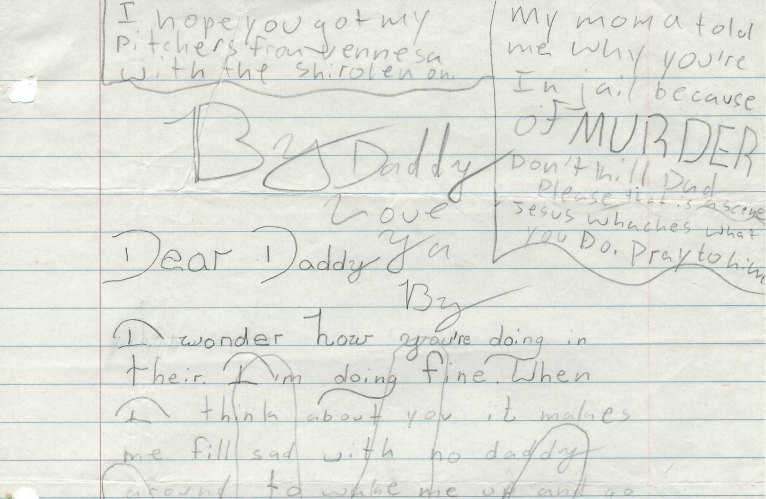 I hope you got my
Pitchers from vennesa
with the on.
My moma told
me why you're
In jail because
of MURDER
Don't kill Dad
Please that is a
Jesus whaches what
you Do. Pray to him
By Daddy
Love
Ya
Dear Daddy
By
I wonder how you're doing in
their. I'm doing fine. When
I think about you it makes
me fill sad with no daddy
around to wake me up and go